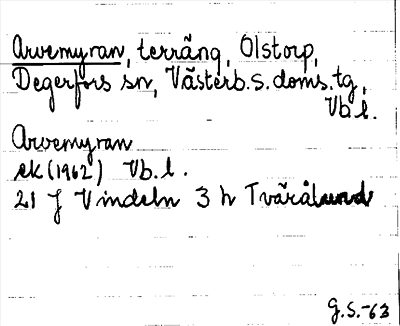 Arvemyran, terräng, Olstorp,
Degerfors sn, Västerb.s.doms.tg,
Vb.l.
Arvemyran
ek (1962) Vb.l.
21 J Vindeln 3 h Tvärålund
G.S.-63